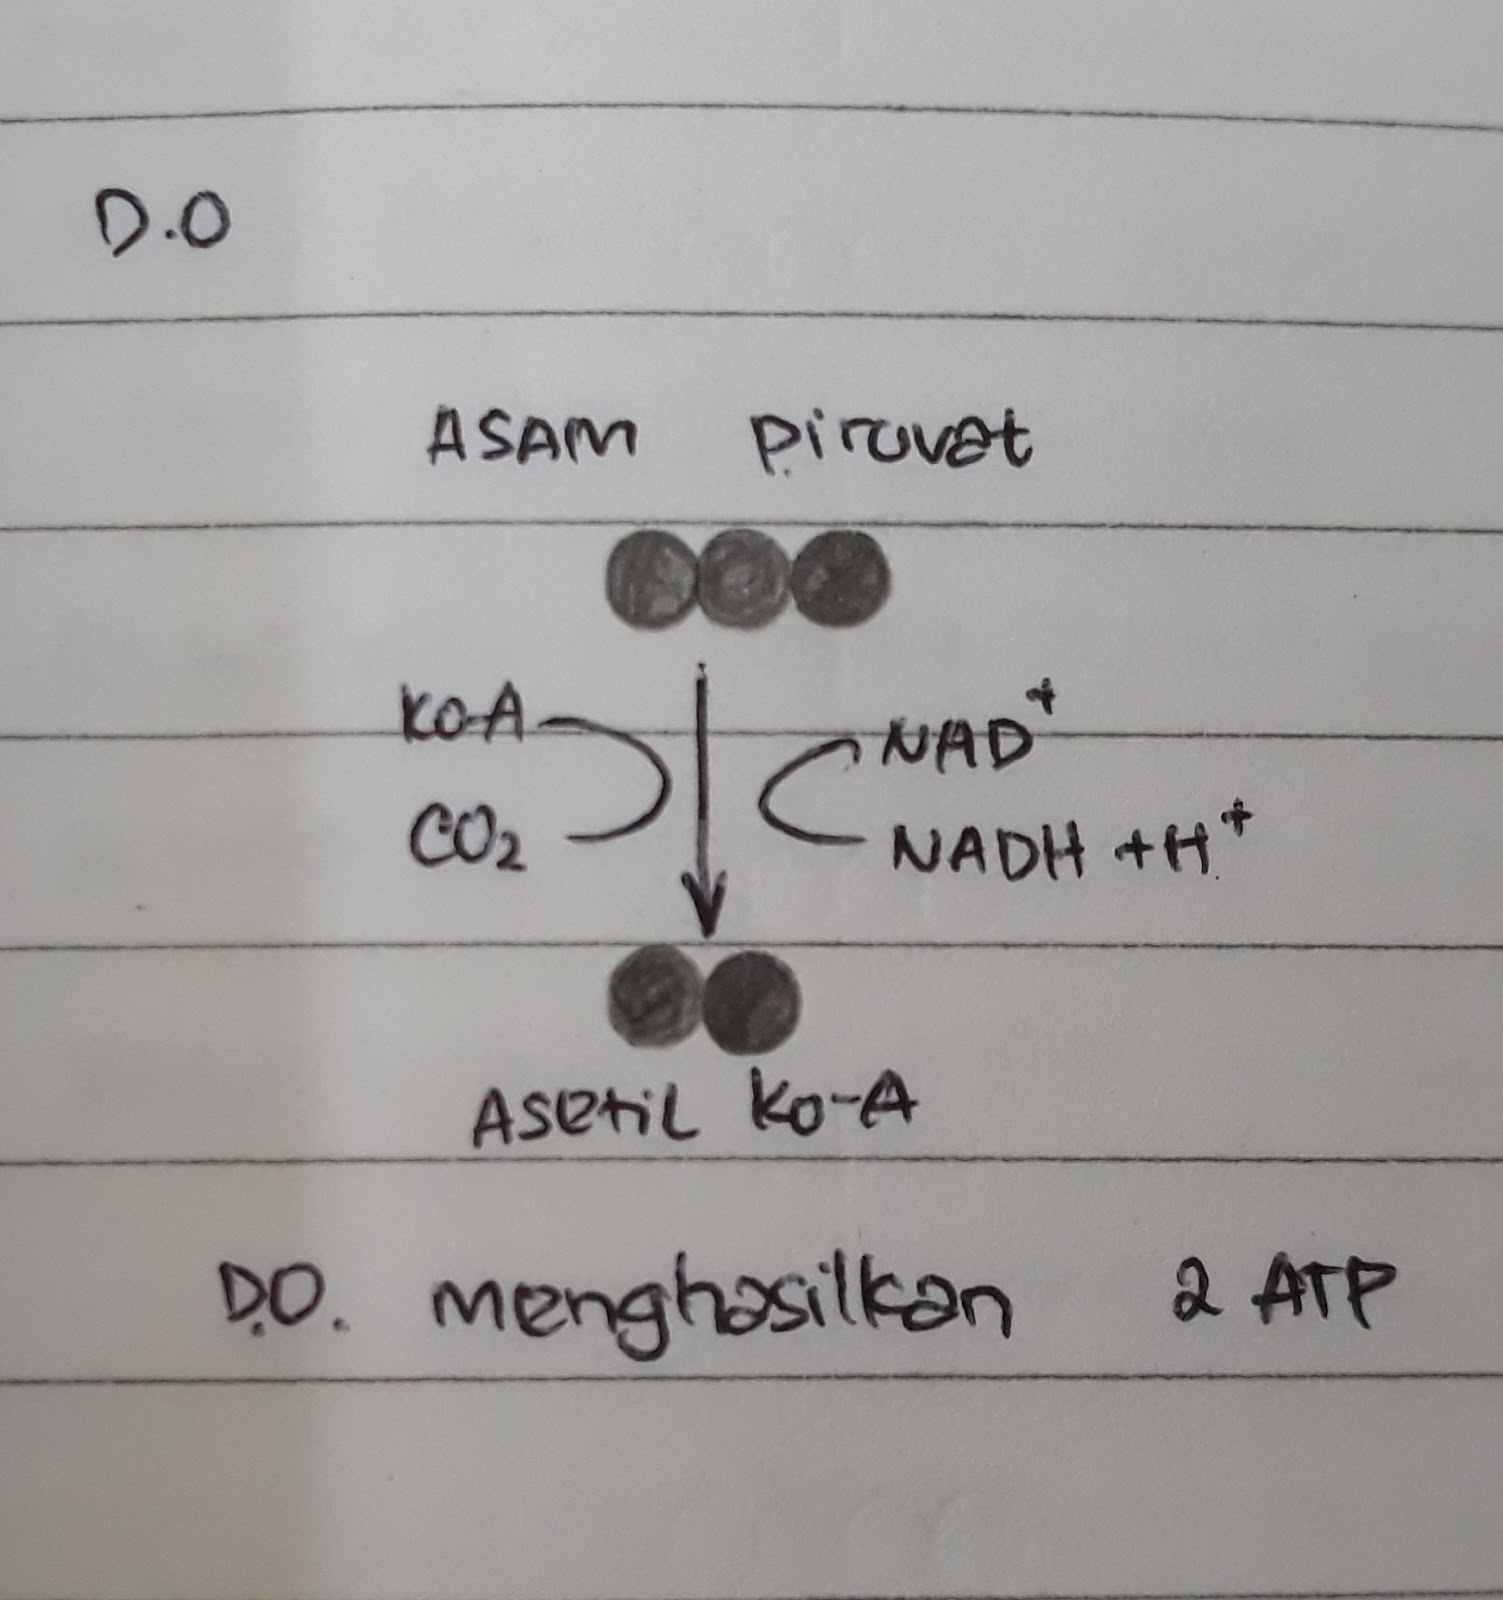 D.O
ASAM piruvat
KO-A
NAD+
CO2
NADH + H+
Asetil Ko-A
D.O. menghasilkan 2 ATP